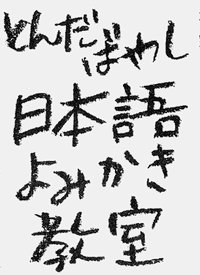 とんだばやし
日本語
よみかき
教室